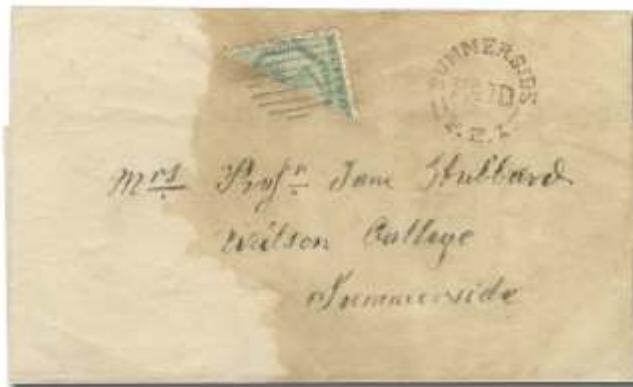 SUMMERSIDE
P.E.I.
Mrs Profr Jane Hubbard
Wilson College
Summerside